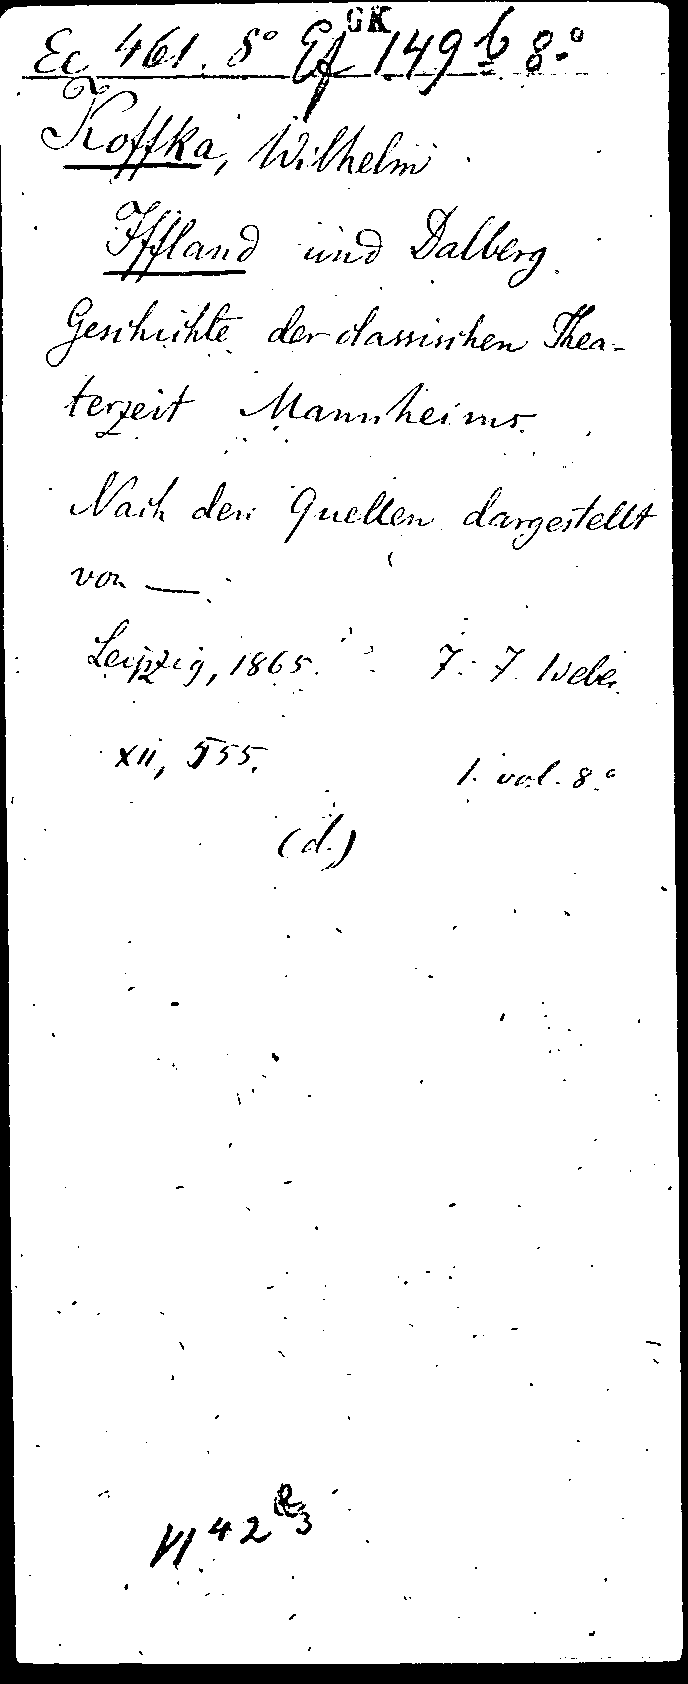 GK
Ec 461. 8° Ef 149 b 8.°
Koffka, Wilhelm
Iffland und Dalberg.
Geschichte der classischen Thea-
terzeit Mannheims.
Nach den Quellen dargestellt
von —.
Leipzig, 1865. J. J. Weber
XII, 555.
1. vol. 8.°
(d.)
42